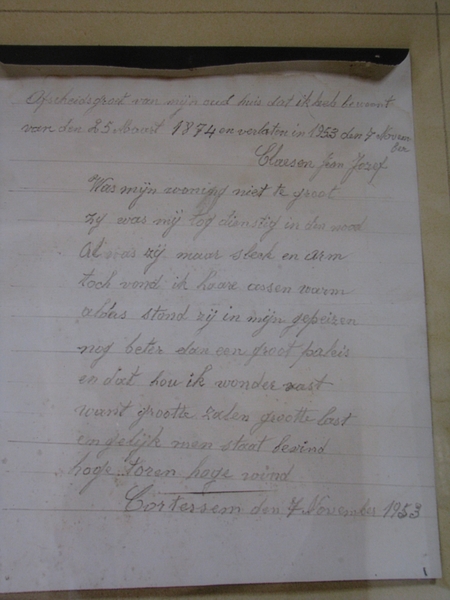 Afscheidsgroet van mijn oud huis dat ik heb bewoont
van den 25 Maart 1874 en verlaten in 1953 den 7 Novem
ber
Claesen Jean Jozef
Was mijn woning niet te groot
zy was mij tog dienstig in den nood
Al was zij maar slerk en arm
toch vond ik haare assen warm
alders stond zij in mijn gepeizen
nog beter dan een groot paleis
en dat hou ik wonder vast
want grootte zalen grootte last
en gelijk men staat bevind
hoge toren hoge wind
Cortessem den 7 November 1953